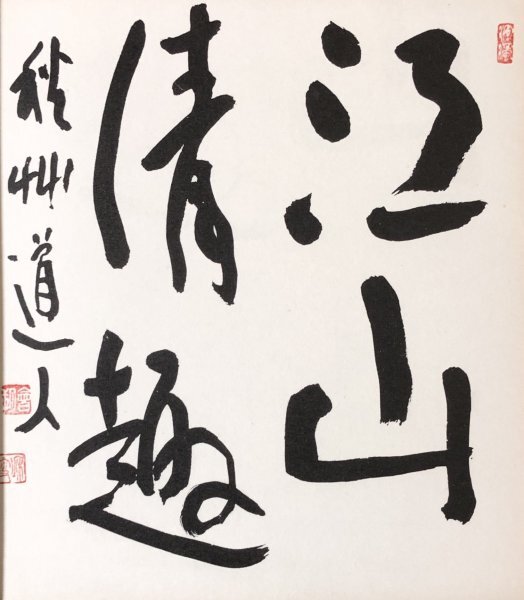 江山
清趣
秋艸道人